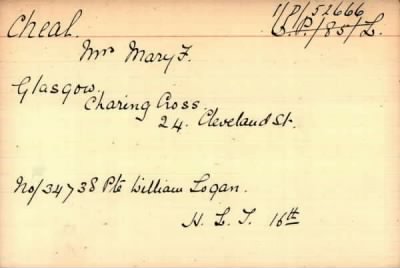 Cheal.
11/P/52666
C.P./85/L.
Mrs Mary F.
Glasgow.
Charing Cross.
24. Cleveland St.
No/34738 Pte William Logan.
H. L. I. 16th